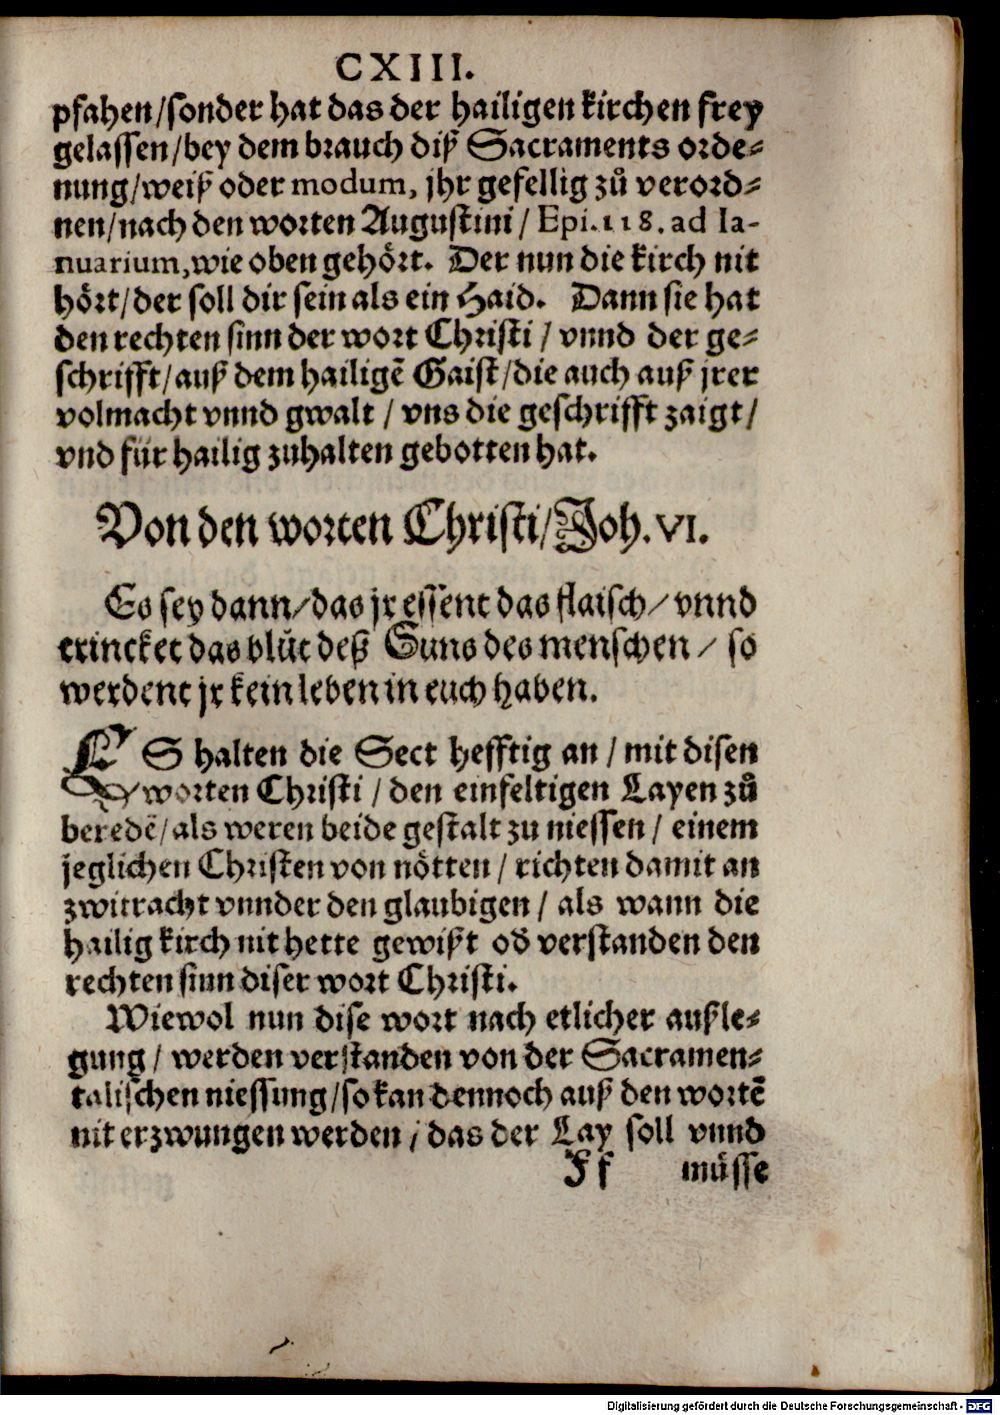 CXIII.
pfahen/sonder hat das der hailigen kirchen frey
gelassen/bey dem brauch diß Sacraments orde-
nung/weiß oder modum, jhr gefellig zů verord-
nen/nach den worten Augustini / Epi.118. ad Ia-
nuarium, wie oben gehört. Der nun die kirch nit
hört/der soll dir sein als ein Haid. Dann sie hat
den rechten sinn der wort Christi / vnnd der ge-
schrifft/auß dem hailigē Gaist/die auch auß jrer
volmacht vnnd gwalt / vns die geschrifft zaigt/
vnd für hailig zuhalten gebotten hat.
Von den worten Christi/Joh.VI.
Es sey dann/das jr essent das flaisch/vnnd
trincket das blůt deß Suns des menschen/ so
werdent jr kein leben in euch haben.
ES halten die Sect hefftig an / mit disen
worten Christi / den einfeltigen Layen zů
beredē/als weren beide gestalt zu niessen/ einem
jeglichen Christen von nötten / richten damit an
zwitracht vnnder den glaubigen / als wann die
hailig kirch nit hette gewißt od verstanden den
rechten sinn diser wort Christi.
Wiewol nun dise wort nach etlicher außle-
gung / werden verstanden von der Sacramen-
talischen niessung/so kan dennoch auß den wortē
nit erzwungen werden / das der Lay soll vnnd
Ff müsse
Digitalisierung gefördert durch die Deutsche Forschungsgemeinschaft - DFG